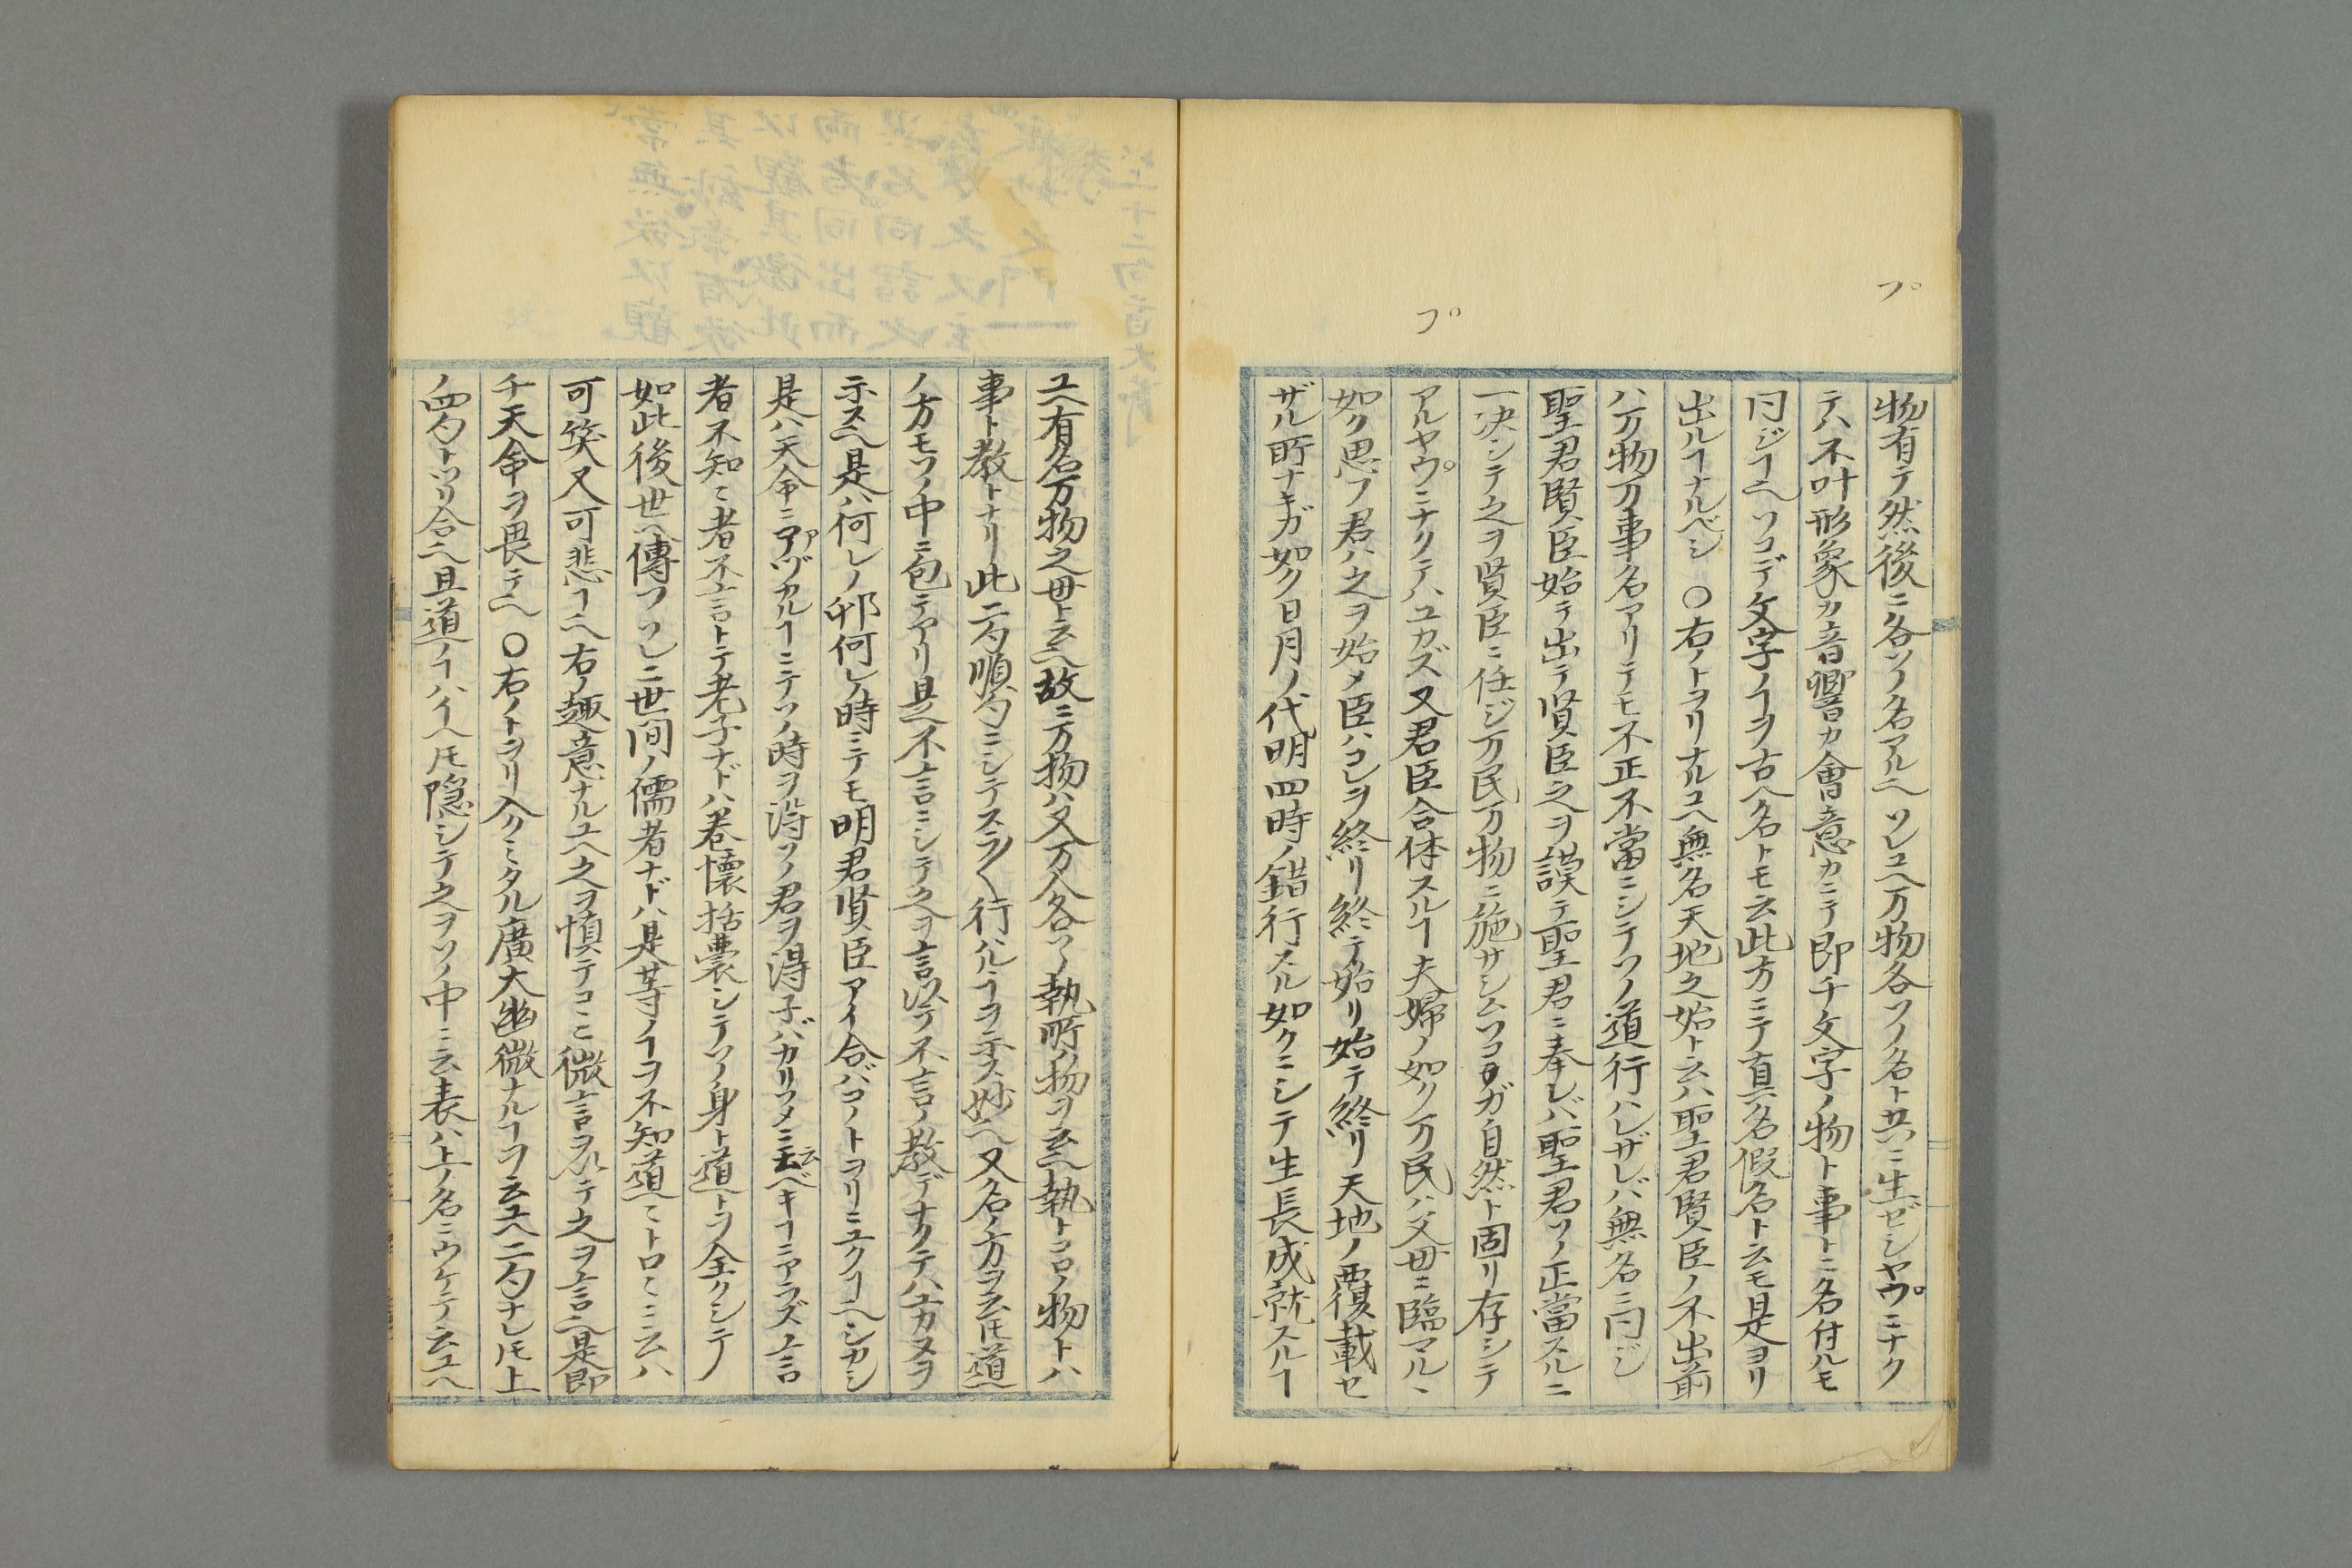 物有テ然後ニ各ソノ名アルヘソレユヘ万物各ソノ名ト共ニ生ゼシヤウ゜ニナク
テハ不叶形象カ音響カ會意カニテ即チ文字ノ物ト事トニ名付ルモ
同ジヿヘソコデ文字ノヿヲ古ヘ名トモ云此方ニテ真名假名ト云モ是ヨリ
出ルヿナルベシ 〇右ノトヲリナルユヘ無名天地之始ト云ハ聖君賢臣ノ不出前
ハ万物万事名アリテモ不正不當ニシテソノ道行ハレザレバ無名ニ同ジ
聖君賢臣始テ出テ賢臣之ヲ謨テ聖君ニ奉レバ聖君ソノ正當スルニ
一决シテ之ヲ賢臣ニ任ジ万民万物ニ施サシムソコヲガ自然ト固リ存シテ
アルヤウ゜ニナクテハユカズ又君臣合体スルヿ夫婦ノ如ク万民ハ父母ニ臨マルヽ
如ク思フ君ハ之ヲ始メ臣ハコレヲ終リ終テ始リ始テ終リ天地ノ覆載セ
ザル所ナキガ如ク日月ノ代明四時ノ錯行スル如クニシテ生長成就スルヿ
ユヘ有名万物之母ト云ヘ故ニ万物ハ又万人各ソノ執所ノ物ヲ云ヘ執トコロノ物トハ
事ト教トナリ此二勺順勺ニシテスラ〱行ハルヽヿヲ示ス妙ヘ又名ノ方ヲ云𪜈道
ノ方モソノ中ニ包テアリ是ヘ不言ニシテ之ヲ言以テ不言ノ教デナクテハエカヌヲ
示スヘ是ハ何レノ邦何レノ時ニテモ明君賢臣アイ合バコノトヲリニユクヿヘシカシ
是ハ天命ニアヅカルヿニテソノ時ヲ得ソノ君ヲ得子バカリソメニ云ベキヿニアラズ言
者不知知者不言トテ老子ナドハ巻懐括囊シテソノ身ト道トヲ全クシテ
如此後世ヘ傳フソレニ世間ノ儒者ナドハ是等ノヿヲ不知道〻トロ〻ニ云ハ
可笑又可悲ヿヘ右ノ趣意ナルユヘ之ヲ慎テコヽニ微言ヲ以テ之ヲ言ヘ是即
チ天命ヲ畏テヘ 〇右ノトヲリ入クミタル廣大幽微ナルヿヲ云ユヘ二勺ナレ𪜈上
ノ四勺トツリ合ヘ且道ノヿハイヘ𪜈隱シテ之ヲソノ中ニ云表ハ上ノ名ニウケテ云ユヘ